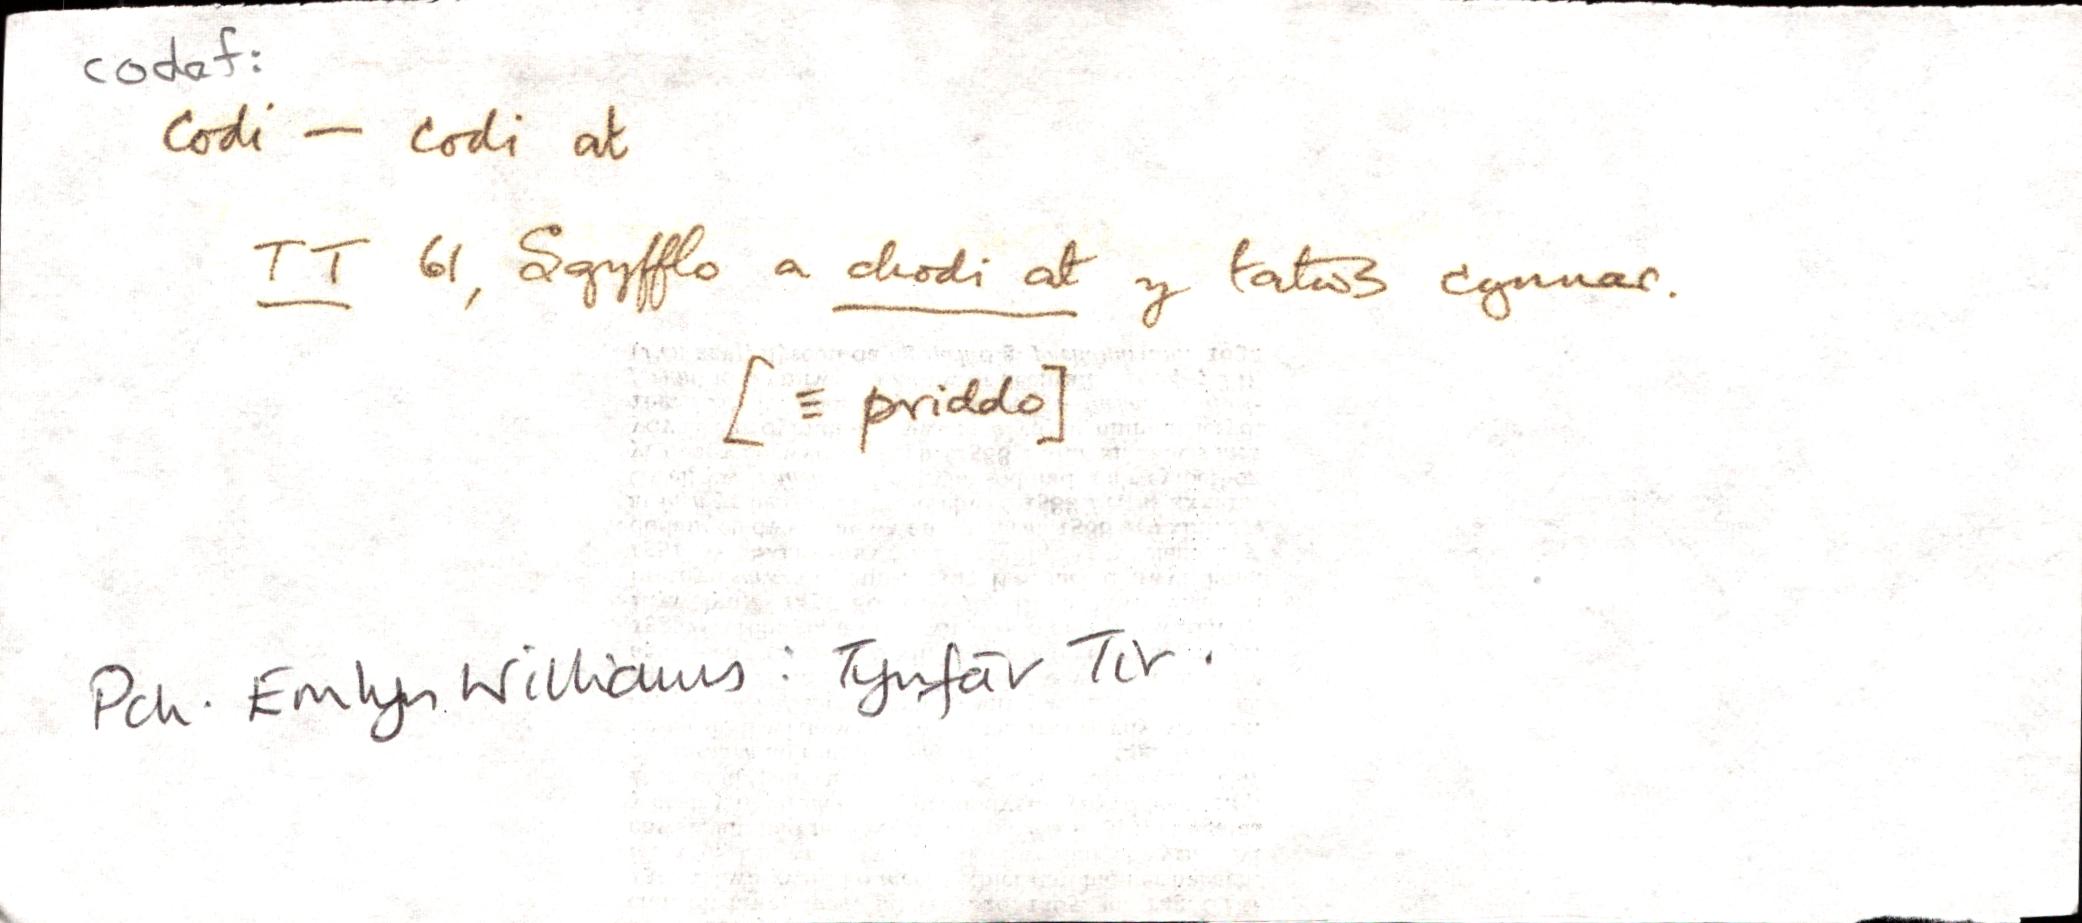 codaf:
Codi — codi at
TT 61, Sgyfflo a chodi at y tatws cynnar.
[≡ priddo]
Pch. Emlyn Williams: Tynfār Tir.